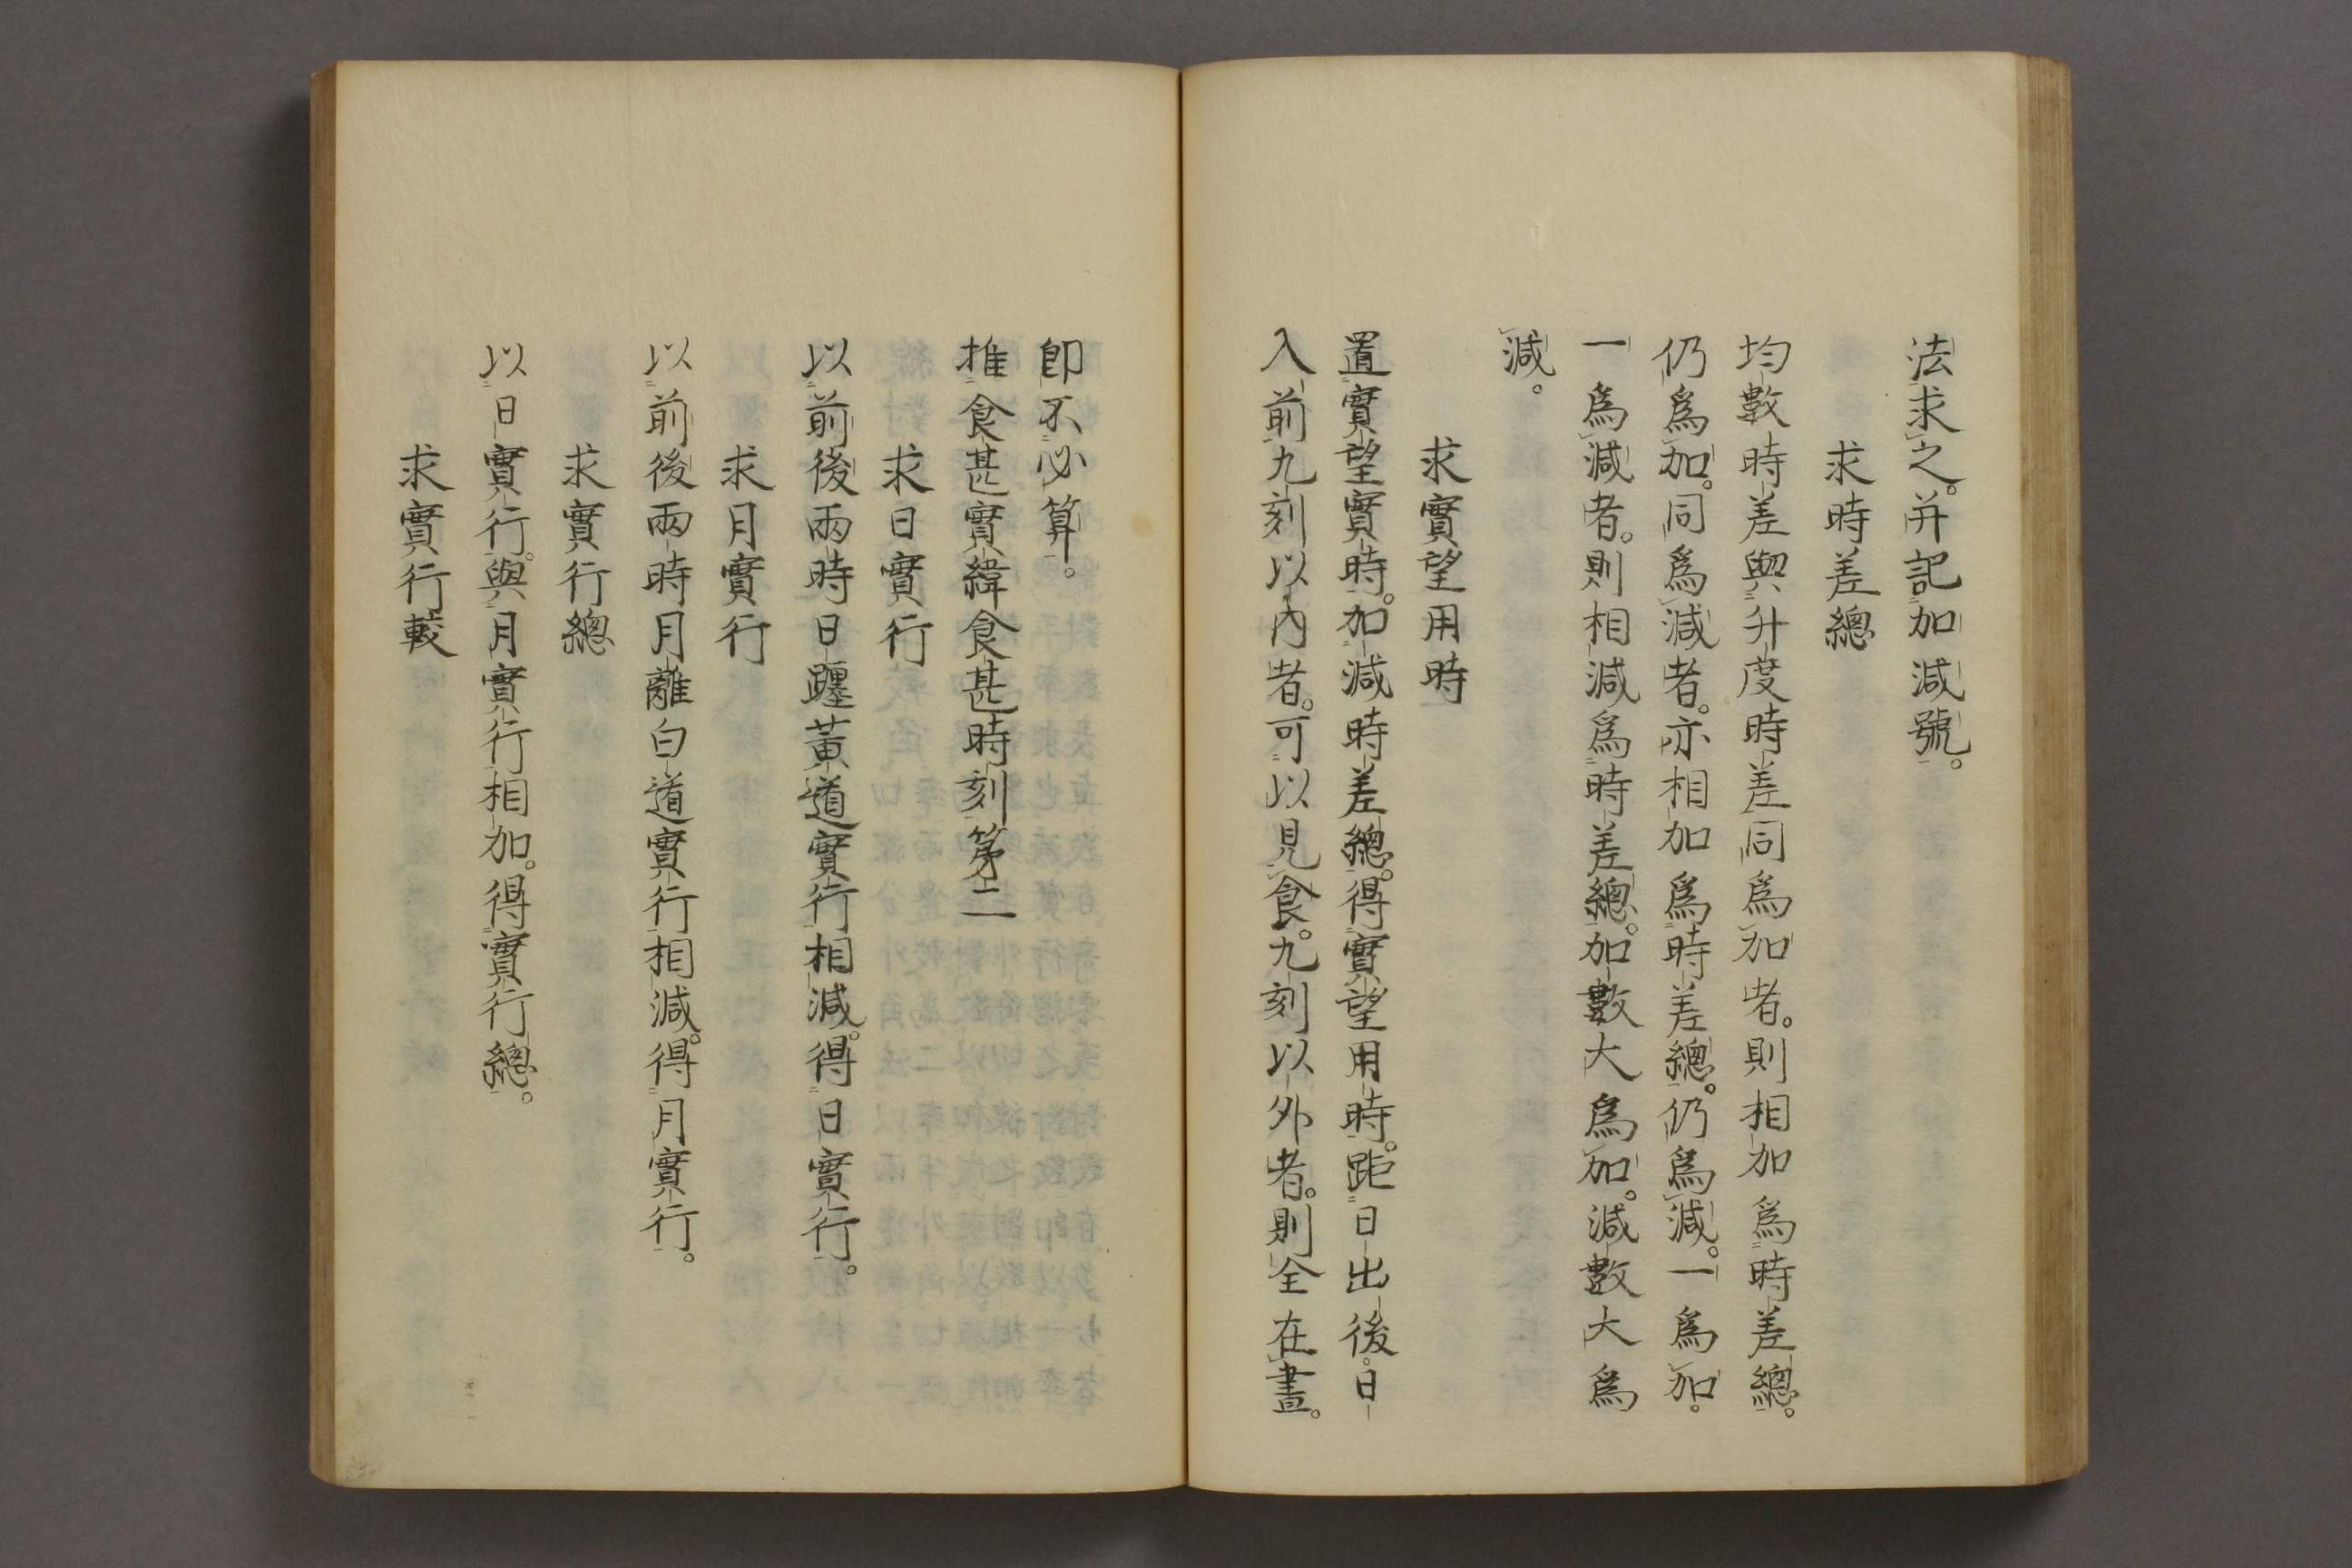 法求之。并記加減號。
求時差總
均數時差與升度時差同爲加者。則相加爲時差總。
仍爲加。同爲減者。亦相加爲時差總。仍爲減。一爲加。
一爲減者。則相減爲時差總。加數大爲加。減數大爲
減。
求實望用時
置實望實時。加減時差總。得實望用時。距日出後。日
入前九刻以內者。可以見食。九刻以外者。則全在晝。
卽不必算。
推食甚實緯食甚時刻第二
求日實行
以前後兩時日躔黃道實行相減。得日實行。
求月實行
以前後兩時月離白道實行相減。得月實行。
求實行總
以日實行。與月實行相加。得實行總。
求實行較